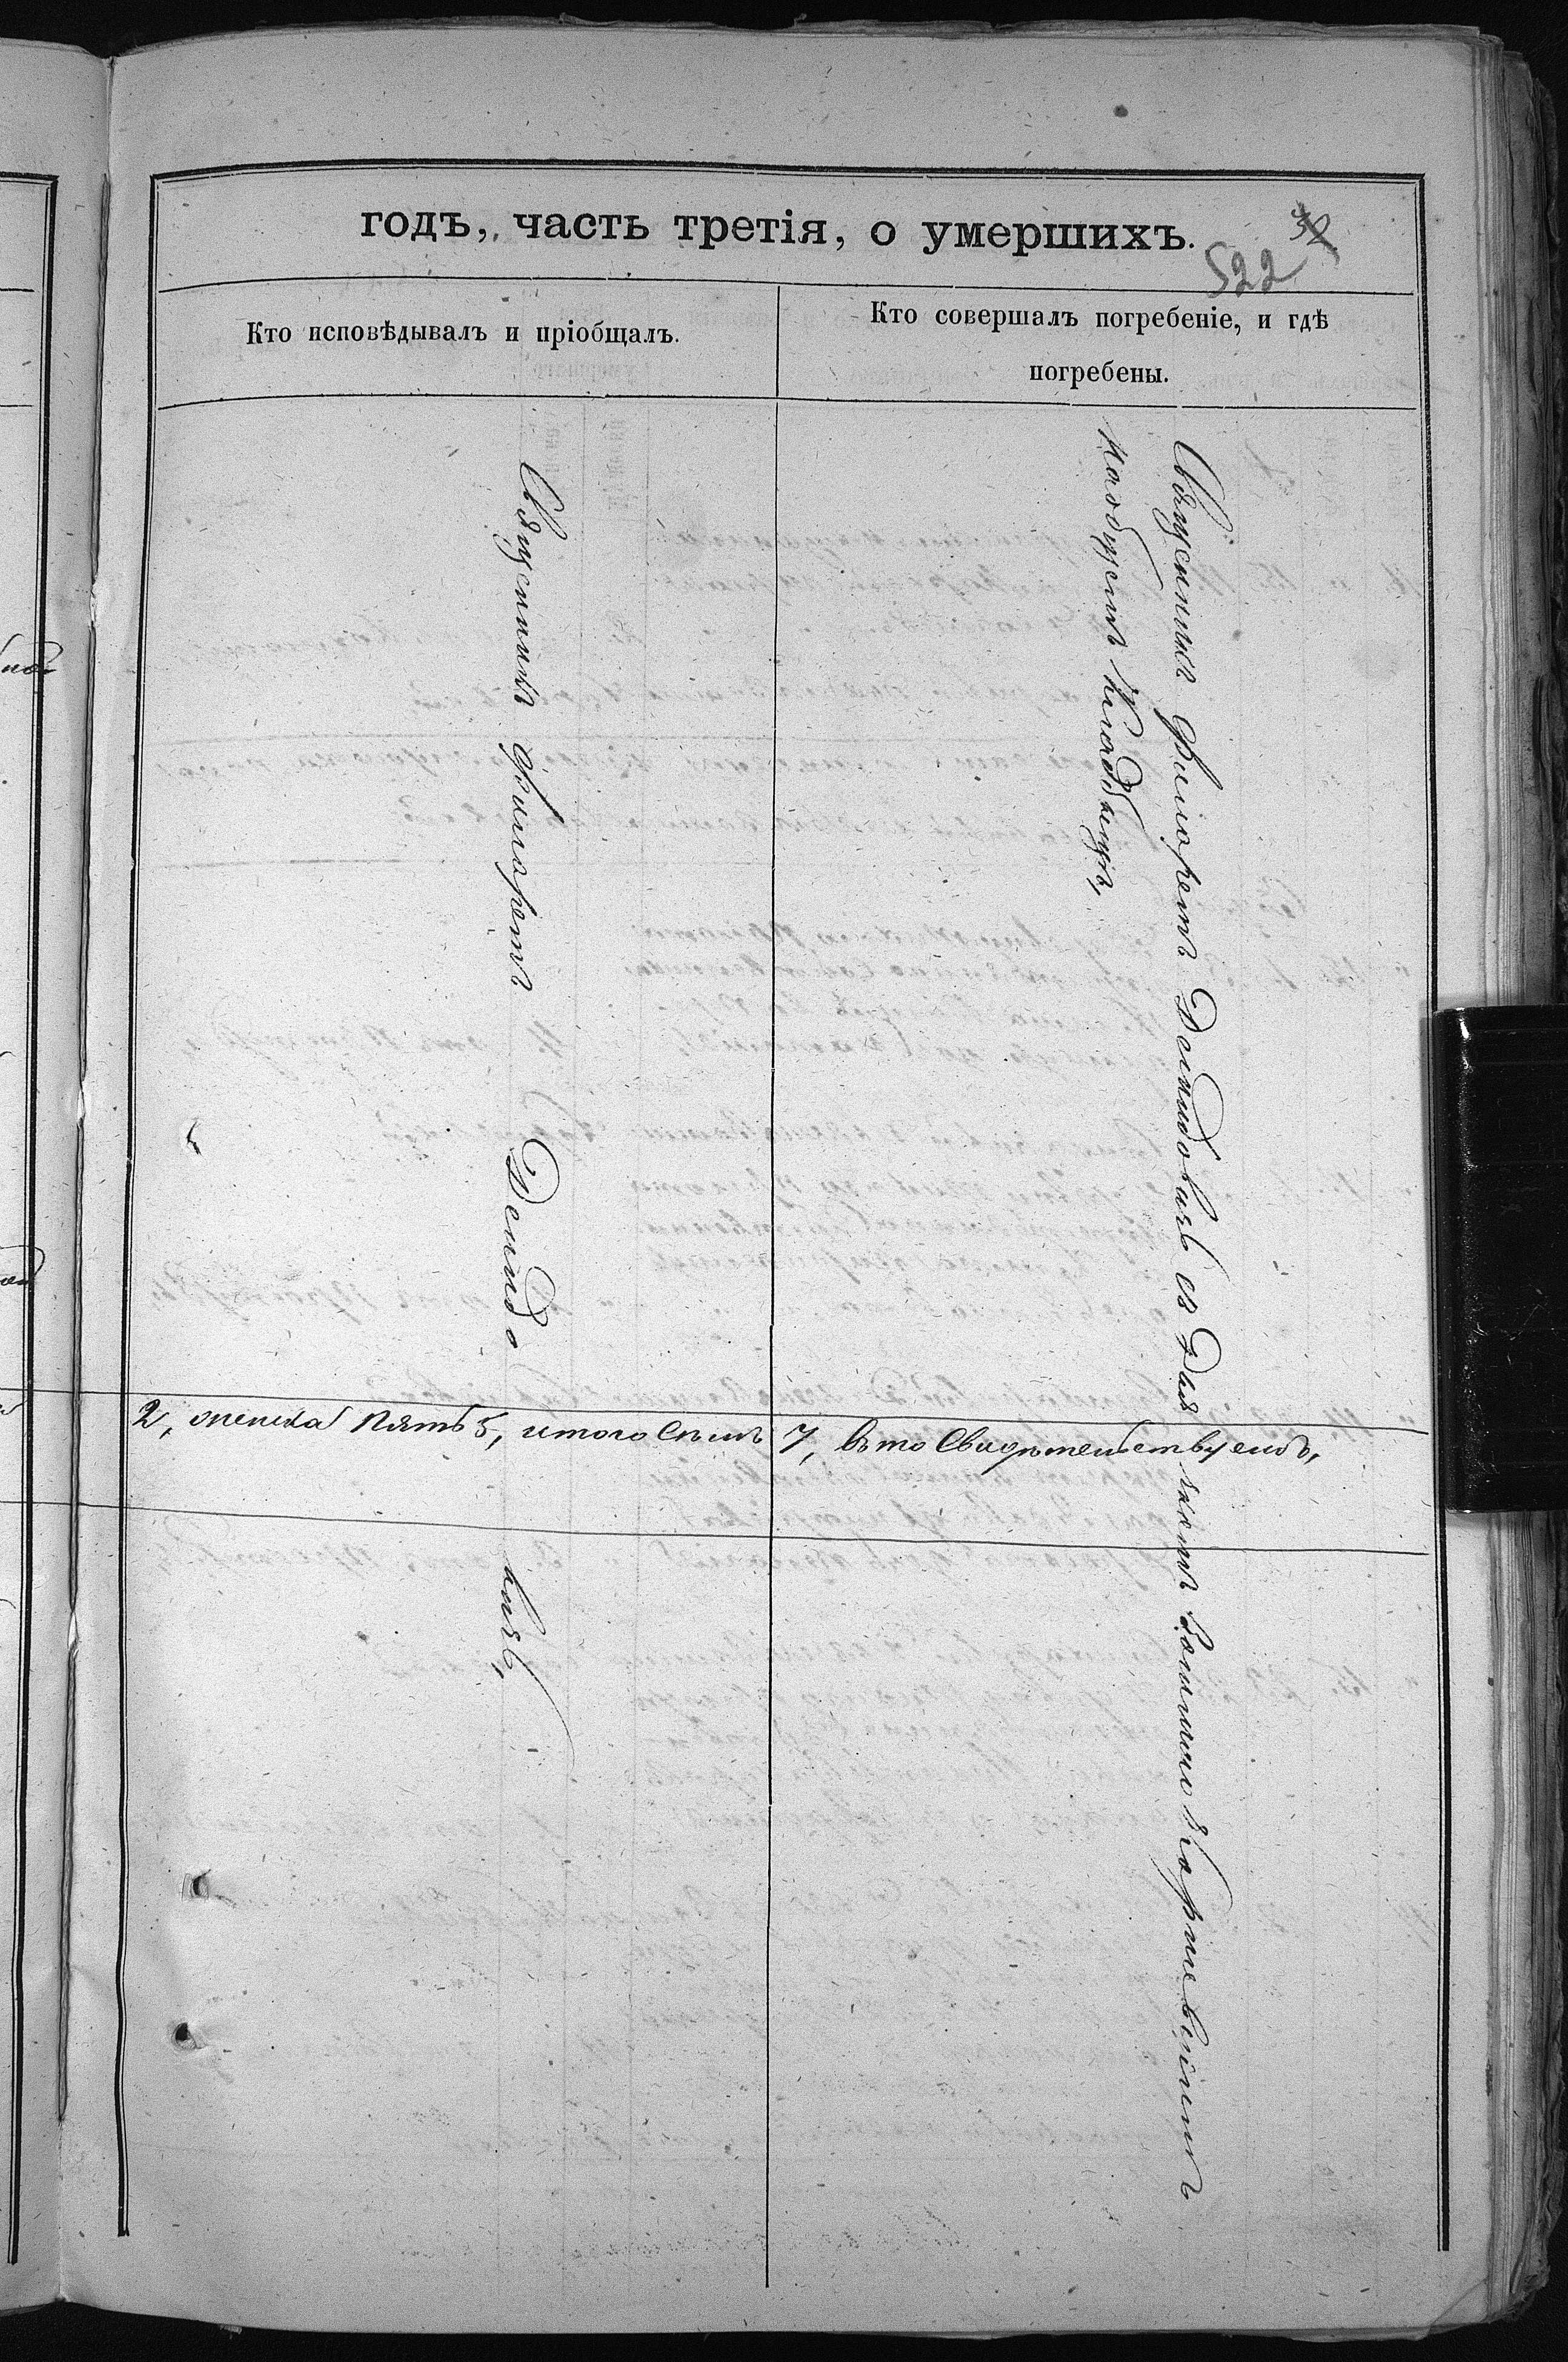 годъ, часть третія, о умершихъ.
522
Кто исповѣдывалъ и пріобщалъ.
Кто совершалъ погребеніе, и гдѣ
погребены.
Священникъ Филаретъ Демидо
вичъ,
Священникъ Филаретъ Демидовичъ съ
наобщемъ кладбищѣ,
2, женска пять 5, итого семь 7, въ то свидѣтельствуемъ,